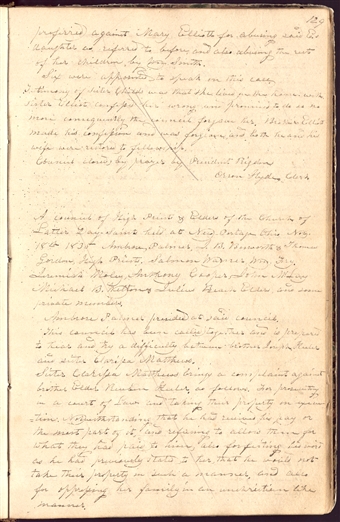 129
preferred against Mary Elliott for abusing said E's
daughter as referred to before and also abusing the rest
of her children by
Six were appointed to speak on this case,
Testimony of Sister Childs was that she lives in the house with
Sister Elliott confess her wrong and promised to do so no
more consequently the council forgave her, Brother Elliott
made his confession and was forgiven, and both he and his
wife were restored to fellowship.
Council closed by prayer by President Rigdon
Orson Hyde, Clerk
A council of High Priests & Elders of the Church of
Latter Day Saints held at New Portage Ohio Nov.
Ambrose Palmer, Bosworth & Thomas
Gordon, High Priests, Salmon Warner
Anthony Cooper John
Michael B. Welton & Julius Elders, and some
private members.
Ambrose Palmer presided at said council.
This council has been called together and is prepared
to hear and try a difficulty between brother
and sister Clarissa Matthews.
Sister Clarissa Matthews brings a complaint against
brother Elder Reuben as follows, For prosecuting
in a court of Law and taking their property on execu
tion, Notwithstanding that he had received his pay or
the most part of it, and refusing to allow them for
what they had paid to him, also forfeiting his word
as he had previously stated to her, that he would not
take their property in such a manner, and also
for oppressing her family in an unchristian like
manner,